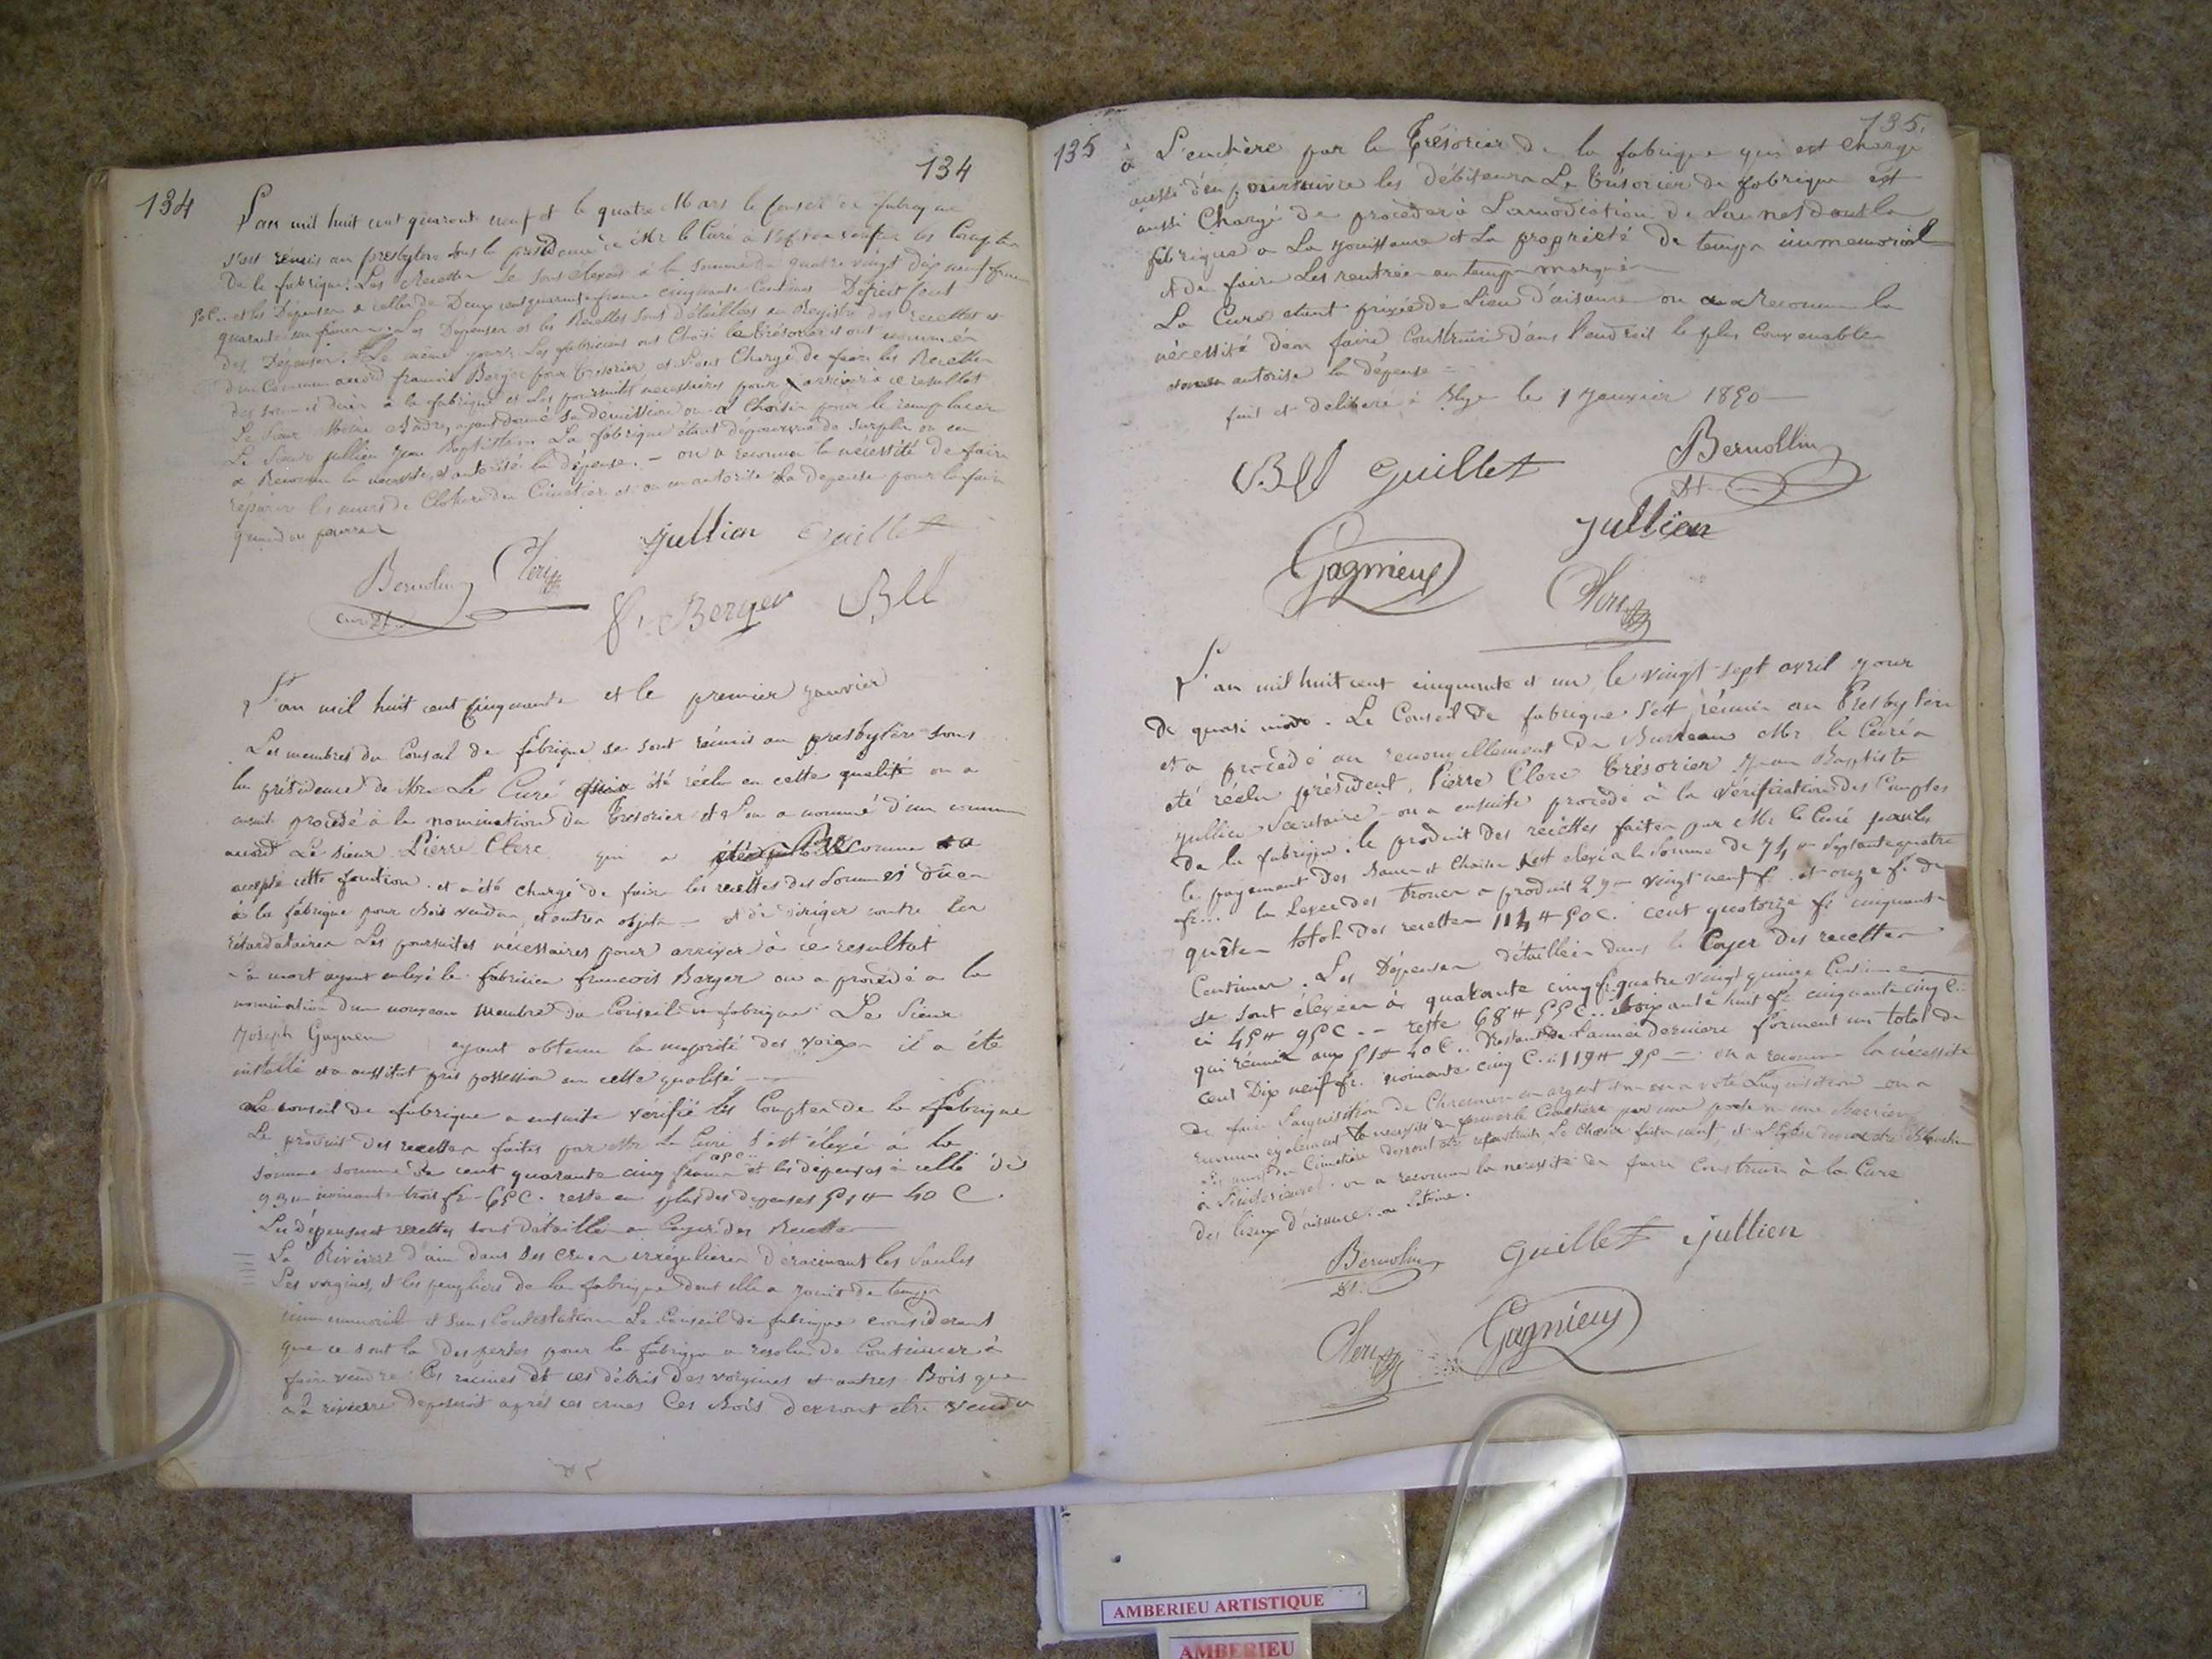 134
134
L'an mil huit cent quarante neuf et le quatre Mars le Conseil de fabrique
s'est réunis au presbytère sous la présidence de Mr le Curé à l'effet de vérifier les Comptes
De la fabrique. Les Recettes se sont élevées à la somme de quatre vingt dix neuf francs
50 C.. et les Dépenses à celle de Deux cent quarante francs cinquante Centimes Déficit cent
quarante un francs. Les Depenses et les Recettes sont détaillées au Registre des recettes et
des Depenses. Le même jour les fabriciens ont Choisi le trésorier et ont nommé
d'un Commun accord françois Berger pour trésorier et l'ont Chargé de faire les Recettes
des sommes dues à la fabrique et les poursuites necessaires pour arriver à ce resultat
Le Sieur André, ayant donné sa demission on a Choisi pour le remplacer
Le Sieur Jullien Jean Baptiste. La fabrique étant depourvue de surplis on en
a Reconnu la necessité, et autorisé la dépense. – on a reconnu la nécessité de faire
réparer les murs de Cloture du Cimetière et on en autorise la depense pour le faire
quand on pourra
Jullien Guillet
Bernollin Clerc
curé
fs Berger Bll
L'an mil huit cent Cinquante et le premier janvier
Les membres du Conseil de fabrique se sont réunis au presbytère sous
la présidence de Mr Le Curé qui a été réélu en cette qualité on a
ensuite procédé à la nomination du Trésorier et l'on a nommé d'un commun
accord Le sieur Pierre Clerc qui a comme
accepté cette fonction. et a été chargé de faire les recettes des sommes dûes
à la fabrique pour bois vendus, et autres objets – et de diriger contre les
rétardataires Les poursuites nécessaires pour arriver à ce resultat
La mort ayant enlevé le fabricien francois Berger on a procédé a la
nomination d'un nouveau membre du Conseil de fabrique. Le Sieur
Joseph Gagneu ayant obtenu la majorité des voix il a été
installé et a aussitot pris possession en cette qualité –
Le conseil de fabrique a ensuite vérifié les Comptes de la fabrique
Le produit des recettes faites par Mr Le Curé s'est élevé à la
somme somme de cent quarante cinq francs et les dépenses à celle de
93 nonante trois fr 65 C. reste en plus des depenses 51 40 C.
Les dépenses et recettes sont détaillées au Cayer des Recettes
La Rivière d'ain dans ses crues irrégulieres déracinant les saules
Les vorgines, et les peupliers de la fabrique dont elle a jouit de temps
immemorial et sans Contestation Le Conseil de fabrique considerant
que ce sont la des pertes pour la fabrique a resolu de Continuer à
faire vendre les racines et ces débris des vorgines et autres Bois que
la riviere deposeroit après ces crues Ces Bois devront etre vendu
135
135.
à L'enchère par le Trésorier de la fabrique qui est chargé
aussi d'en poursuivre les débiteurs Le trésorier de fabrique est
aussi Chargé de proceder à L'amodiation de dont la
fabrique a La jouissance et La propriété de temps immemorial
et de faire Les rentrées au temps marqué
La Cure etant privée de Lieu d'aisance on a reconnu la
nécessité d'en faire Construire dans l'endroit le plus Convenable
autorise la dépense –
fait et deliberé à Blye le 1 Janvier 1850
Bll Guillet Bernollin
Gagnieux Jullien
Clerc
L'an mil huit cent cinquante et un le vingt sept avril jour
de quasi modo. Le Conseil de fabrique s'est réunis au Presbytère
et a procédé au renouvellement du Bureau Mr le Curé a
été réélu président, Pierre Clerc trésorier Jean Baptiste
Jullien Secretaire – on a ensuite procédé à la vérification des Comptes
de la fabrique. le produit des recettes faites par Mr le Curé pour
le payement des bancs et chaises s'est elevé à la somme de 74 septante quatre
fr... la Levée des troncs a produit 29 – vingt neuf f. et onze f. de
quêtes total des recettes 114 50 C. cent quatorze fr cinquante
Centimes. Les Dépenses détaillées dans le Cayer des recettes
se sont élevées à quarante cinq fr. quatre vingt quinze Centimes
ci 45 95 C – reste 68 55 C.. soixante huit fr cinquante cinq C..
qui réunis aux 51 40 C.. Restant de l'année derniere forment un total de
cent Dix neuf fr. nonante cinq C. .. 119 95 –. on a reconnu la nécessité
de faire l'aquisition de en argent on a voté L'aquisition on a
reconnu également la necessité de fermer le Cimetière par une porte ou une barriere
Les murs du Cimetière devront être
à l'interieur. on a reconnu la nécessité de faire Construire à la Cure
des lieux d'aisance. ou Latrine.
Bernollin Guillet Jullien
Clerc Gagnieux
AMBERIEU ARTISTIQUE
AMBERIEU